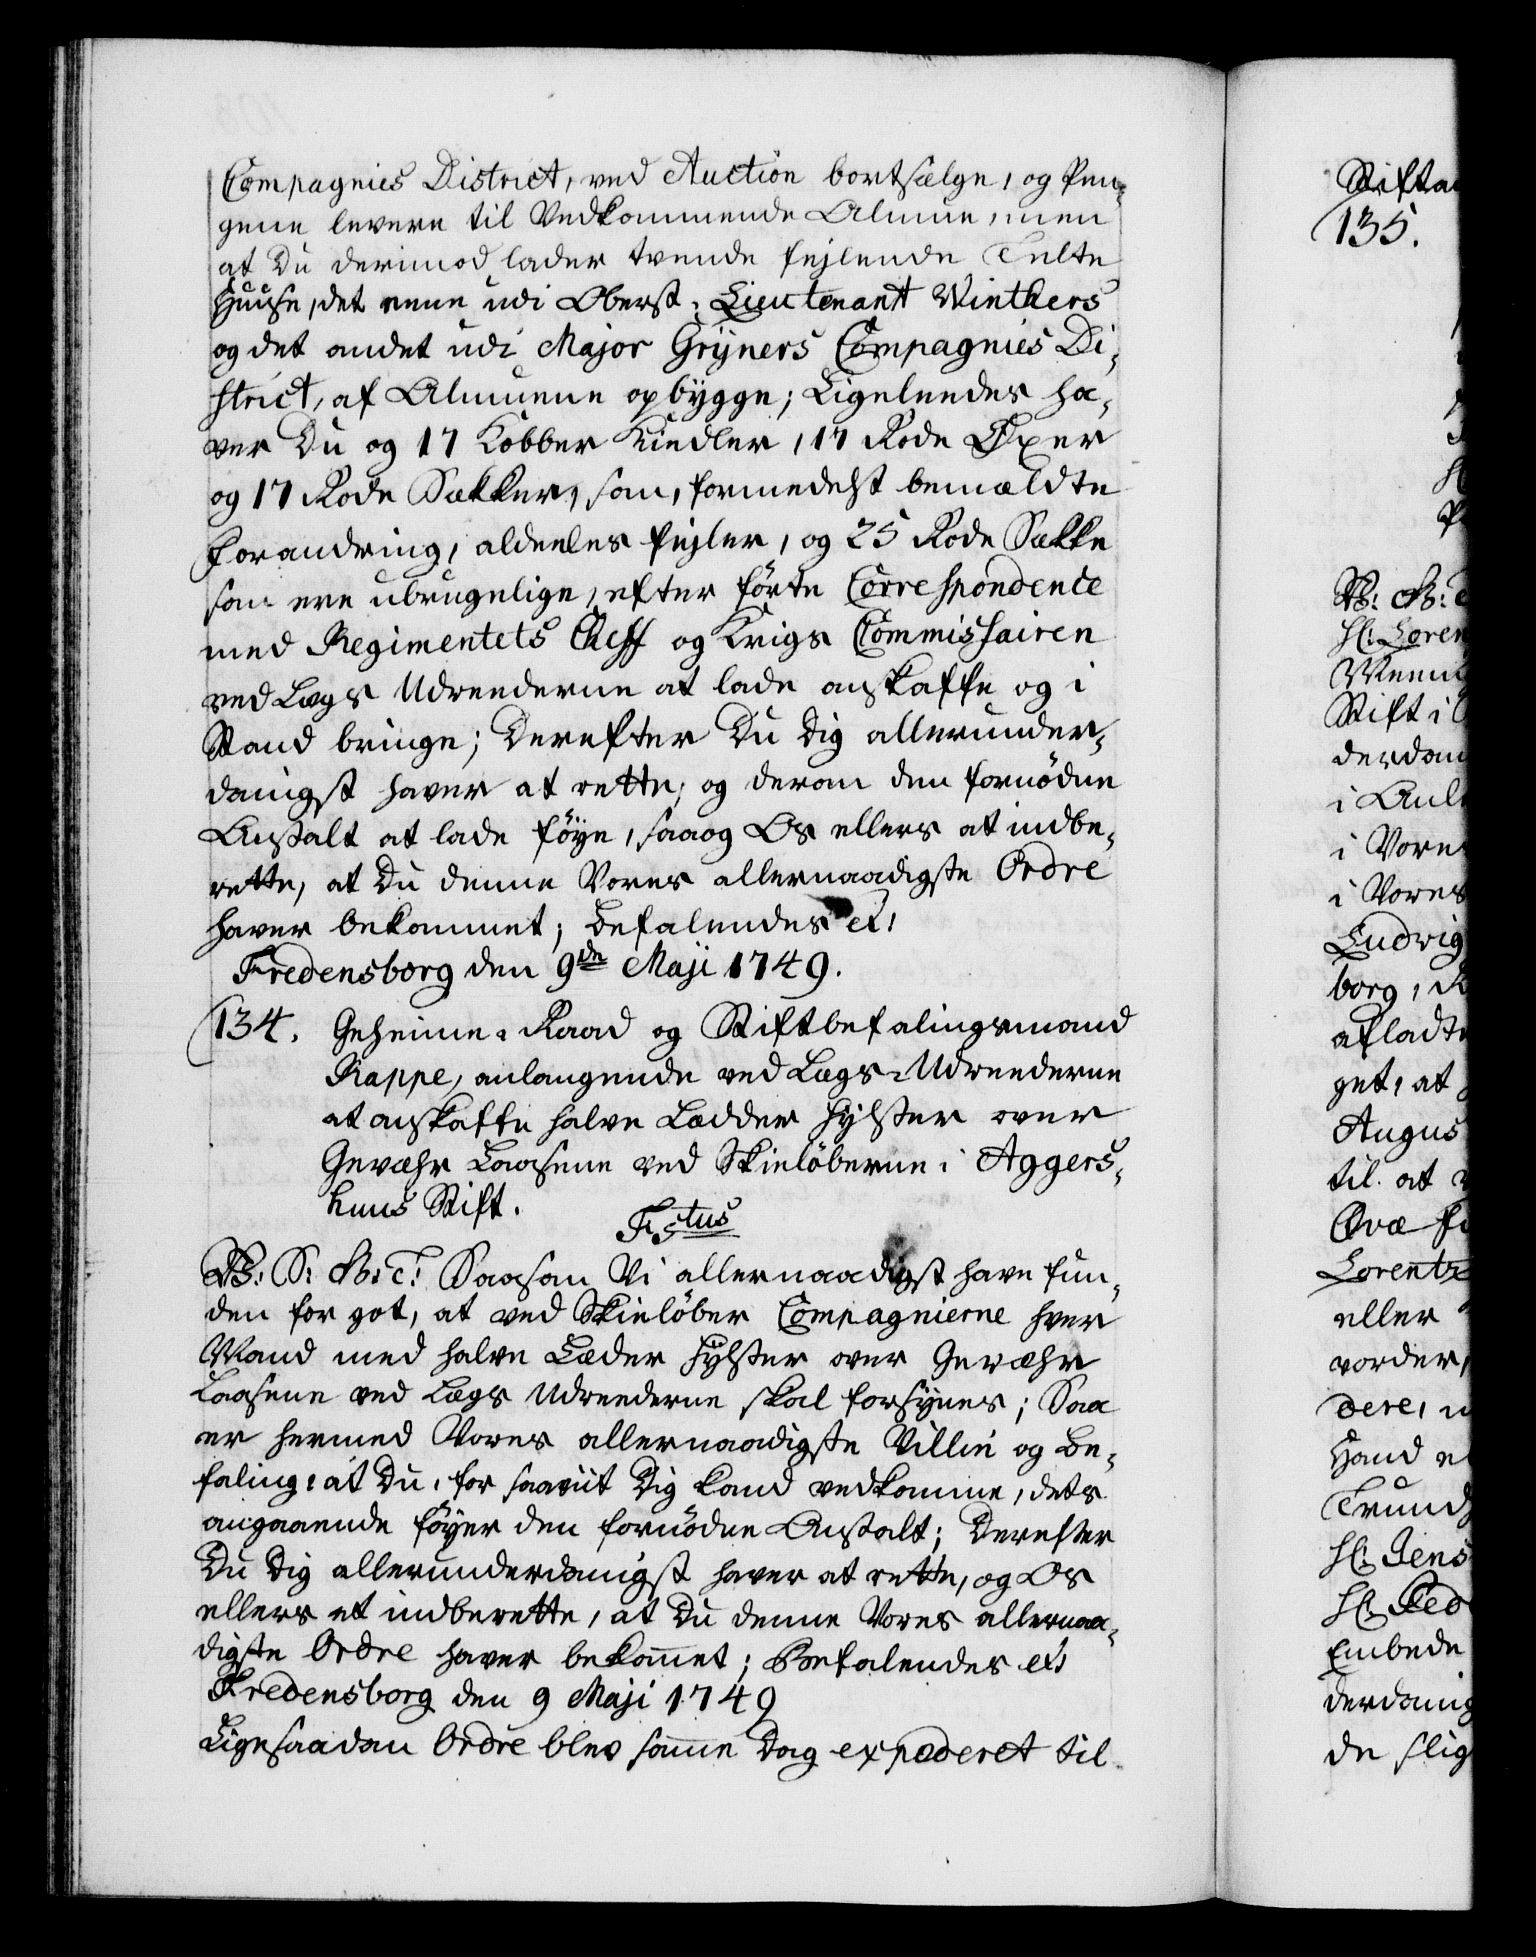 Compagnies District, ved Auction bortsælge, og Pen-
gene levere til Vedkommende Almue, men
at Du derimod lader tvende fejlende Telte
Huuse, det eene udi Oberst-Lieutenant Winthers
og det andet udi Major Grÿners Compagnies Di-
strict, af Almuene opbygge; Ligeleedes ha-
ver Du og 17 Kobber Kiedler, 17 Rode Øxer
og 17 Rode Sækker, som, formedelst bemældte
Forandring, aldeeles fejler, og 25 Rode Sække
som ere ubrugelige, efter førte Correspondence
med Regimentets Cheff og Krigs Commissairen
ved Lægs Udreederne at lade anskaffe og i
Stand bringe; Derefter Du dig allerunder-
danigst haver at rette, og derom den fornødne
Anstalt at lade føÿe, saa og Os ellers at indbe-
rette, at Du denne Vores allernaadigste Ordre
haver bekommet; Befalendes etc
Fredensborg den 9de Maji 1749.
134. Geheime-Raad og Stiftbefalingsmand
Rappe, anlangende ved Lægs-Udreederne
at anskaffe halve Lædder Hÿlster over
Gevæhr Laasene ved Skieløberne i Aggers-
huus Stift.
F: 5tus
V: S: G: T: Saasom Vi allernaadigst have fun-
den for got, at ved Skieløber Compagnierne hver
Mand med halve Læder Hÿlster over Gevæhr
Laasene ved Lægs Udreederne skal forsÿnes; Saa
er hermed Vores allernaadigste Villie og Be-
faling, at Du, for saaviit Dig kand vedkomme, dets
angaaende føÿer den fornødne Anstalt; Derefter
Du dig allerunderdanigst haver at rette, og Os
ellers at indberette, at Du denne Vores allernaa-
digste Ordre haver bekom̄et; Befalendes etc
Fredensborg den 9 Maji 1749
Ligesaadan Ordre blev samme Dag expederet til
135.
Stift i
i Vores
Ludwig
borg,
get, at
til at
Lorentz
eller
dere,
Hl. Jens
Embede